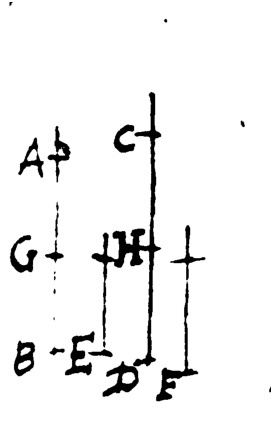 A C
G H
B E D F